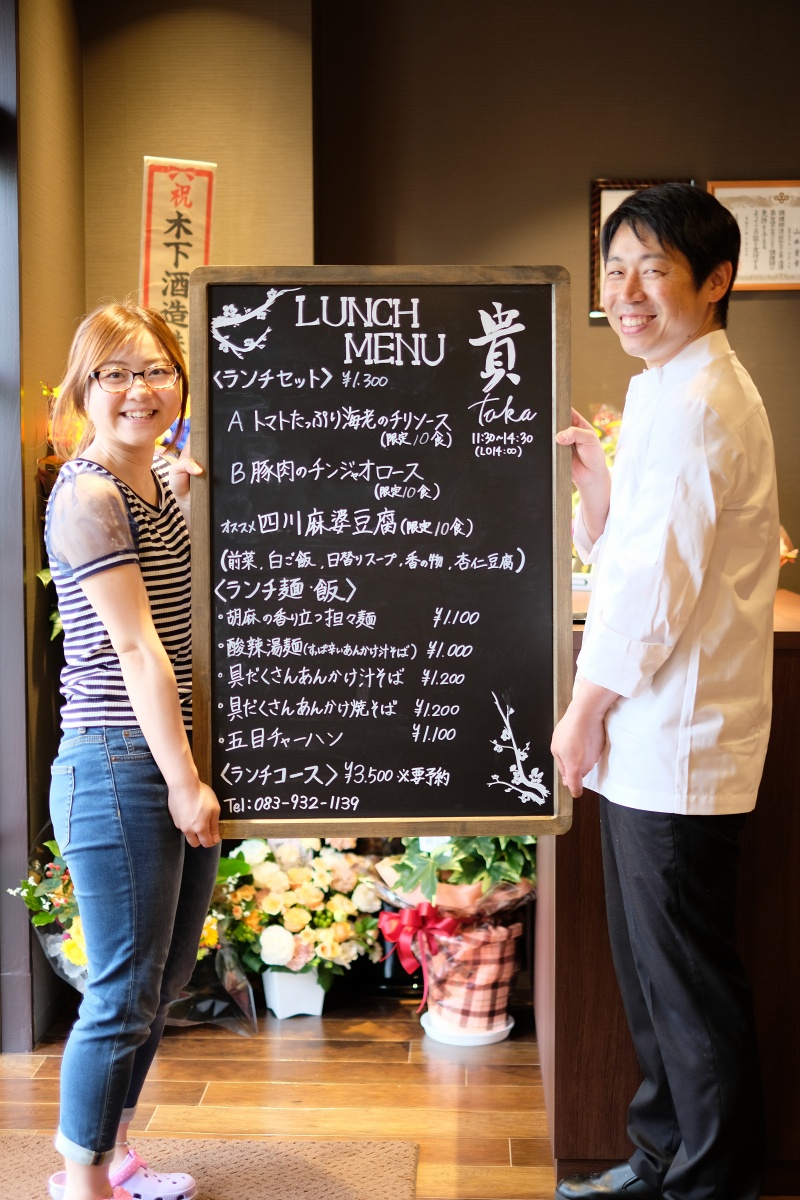 祝
木下酒造
LUNCH
MENU
貴
taka
11:30~14:30
(LO14:00)
〈ランチセット〉 ¥1.300
A トマトたっぷり海老のチリソース
(限定10食)
B 豚肉のチンジャオロース
(限定10食)
オススメ 四川麻婆豆腐(限定10食)
(前菜.白ご飯.日替りスープ.香の物.杏仁豆腐)
〈ランチ麺・飯〉
・胡麻の香り立つ担々麺 ¥1.100
・酸辣湯麺(すっぱ辛いあんかけ汁そば) ¥1.000
・具だくさんあんかけ汁そば ¥1.200
・具だくさんあんかけ焼そば ¥1.200
・五目チャーハン ¥1.100
〈ランチコース〉 ¥3.500 ※要予約
Tel:083-932-1139